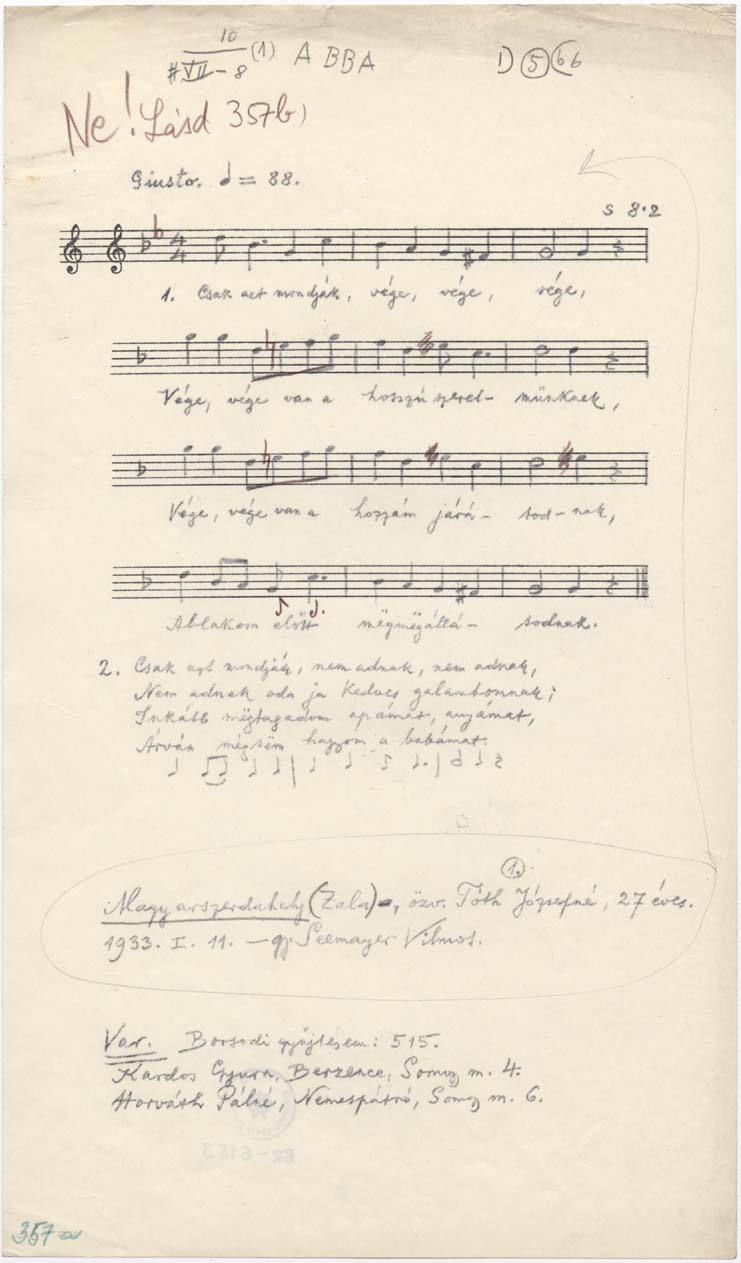 10
#VII-8 (1) A BBA D 5 66
Ne! Lásd 357b)
Giusto. = 88.
s 8·2
1. Csak azt mondják, vége, vége, vége,
Vége, vége van a hosszú szerel- münknek,
Vége, vége van a hozzám járá- sod- nak,
Ablakom előtt mëgmëgállá- sodnak.
2. Csak azt mondják, nem adnak, nem adnak,
Nem adnak oda ja kedves galambomnak;
Inkább mëgtagadom apámat, anyámat,
Árván mégsëm hagyom a babámat.
1.
Magyarszerdahely (Zala), özv. Tóth Józsefné, 27 éves.
1933. I. 11. – gy. Seemayer Vilmos.
Var. Borsodi gyűjtésem: 515.
Kardos Gyura, Berzence, Somogy m. 4.
Horváth Pálné, Nemespátró, Somogy m. 6.
BR-6153
357a